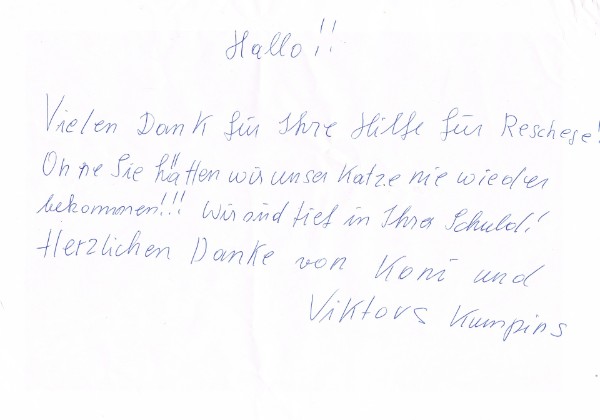 Hallo!!
Vielen Dank für Ihre Hilfe für Reschese!
Ohne Sie hätten wir unser Katze nie wieder
bekommen!!! Wir sind tief in Ihrer Schuld!
Herzlichen Danke von Koni und
Viktors Kumpins